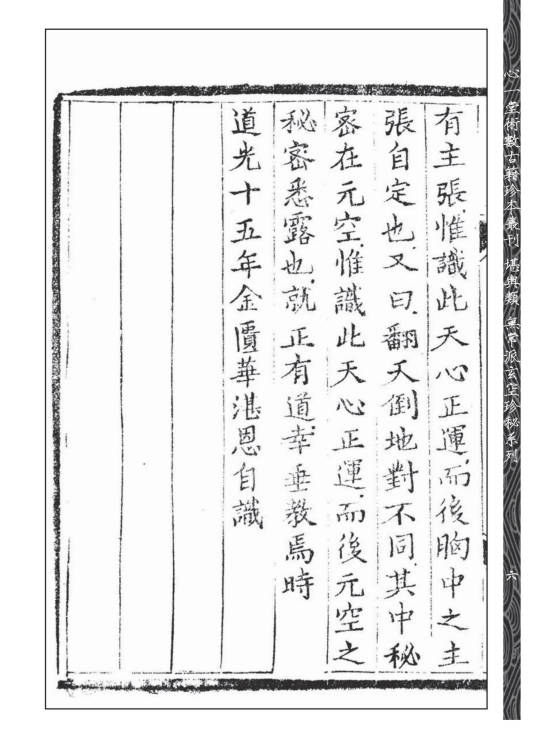 有主張惟識此天心正運而後胸中之主
張自定也又曰翻天倒地對不同其中秘
密在元空惟識此天心正運而後元空之
秘密悉露也就正有道幸垂教焉時
道光十五年金匱華湛恩自識
心一堂術數古籍珍本叢刊 堪輿類 無常派玄空珍秘系列
六